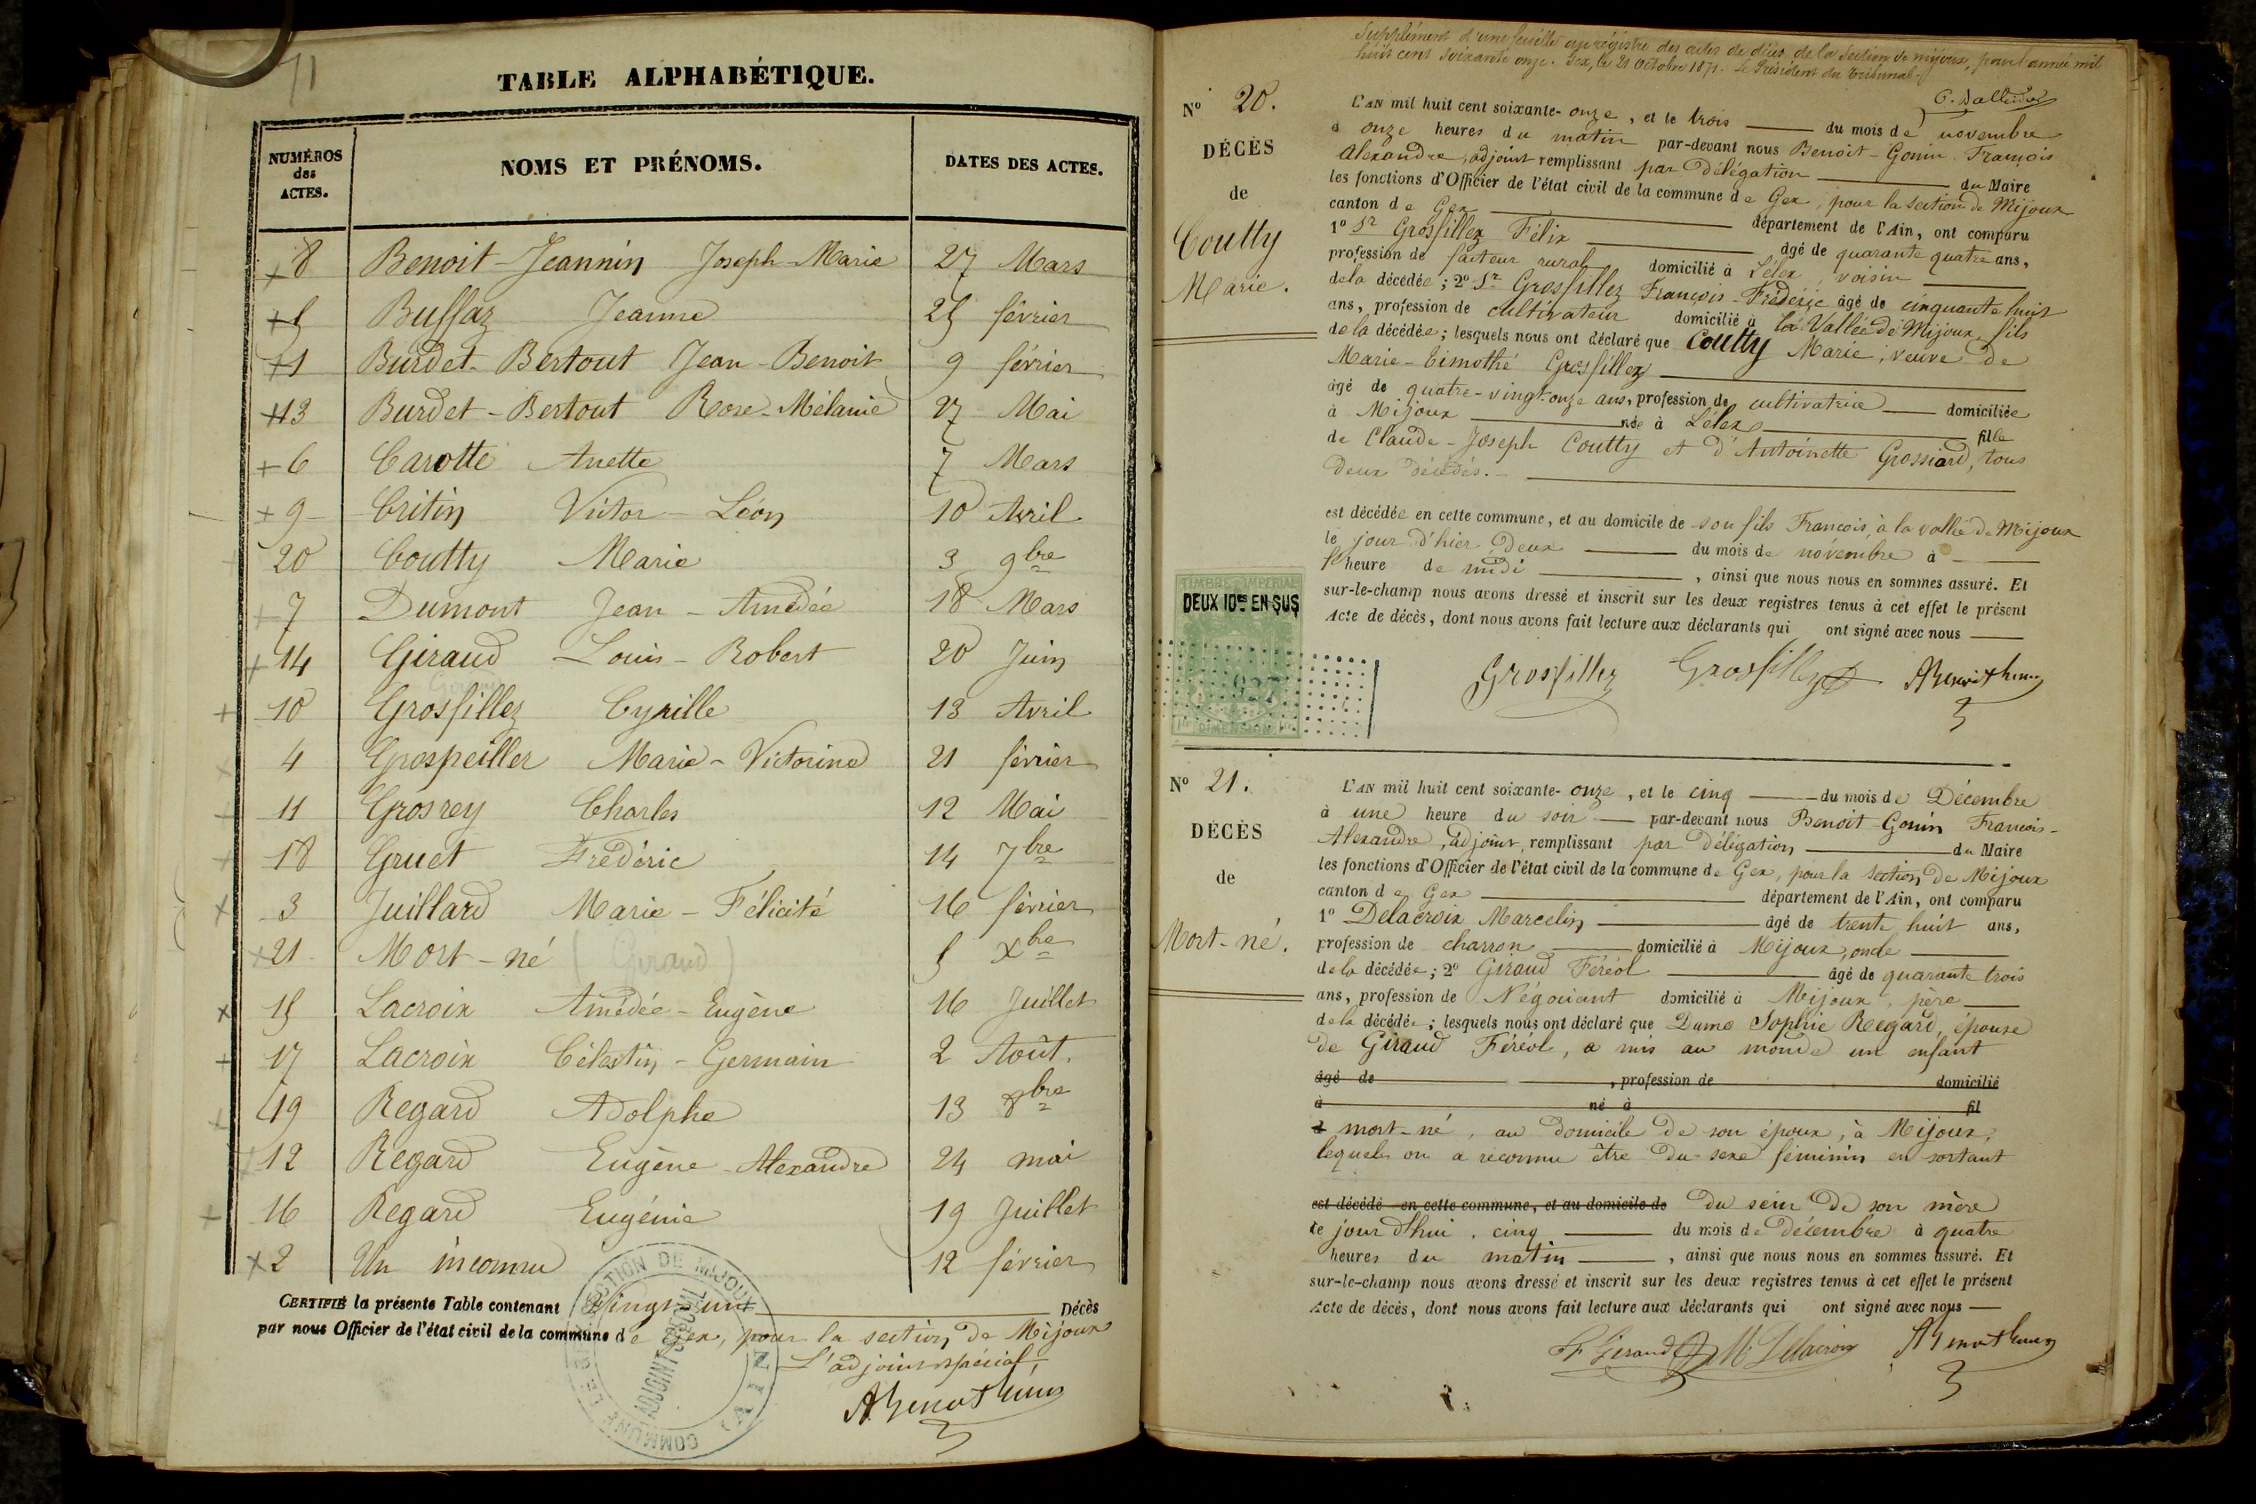 71
TABLE ALPHABÉTIQUE.
NUMÉROS des ACTES. NOMS ET PRÉNOMS. DATES DES ACTES.
8 Benoit-Jeannin Joseph-Marie 27 Mars
5 Buffaz Jeanne 25 février
1 Burdet-Bertout Jean-Benoit 9 février
13 Burdet-Bertout Rose-Mélanie 27 Mai
6 Carotte Anette 7 Mars
9 Critin Victor-Léon 10 Avril
20 Coutty Marie 3 9bre
7 Dumont Jean-Amédée 18 Mars
14 Giraud Louis-Robert 20 Juin
10 Grosfillez Cyrille 13 Avril
4 Grospeiller Marie-Victorine 21 février
11 Grosrey Charles 12 Mai
18 Gruet Frédéric 14 7bre
3 Juillard Marie-Félicité 16 février
21 Mort-né (Giraud) 5 Xbre
15 Lacroix Amédée-Eugène 16 Juillet
17 Lacroix Célestin-Germain 2 Août.
19 Regard Adolphe 13 8bre
12 Regard Eugène-Alexandre 24 mai
16 Regard Eugénie 19 Juillet
2 Un inconnu 12 février
CERTIFIÉ la présente Table contenant Vingt-un Décès
par nous Officier de l'état civil de la commune de Gex, pour la section de Mijoux
L'adjoint spécial,
SECTION DE MIJOUX
ADJOINT SPÉCIAL
COMMUNE DE GEX (AIN)
Supplément d'une feuille au régistre des actes de décès de la Section de mijoux, pour l'année mil
huit cent soixante onze. Gex, le 21 Octobre 1871. Le Président du tribunal.
No 20.
DÉCÈS
de
Coutty
Marie.
L'AN mil huit cent soixante-onze, et le trois du mois de novembre
à onze heures du matin par-devant nous Benoit-Gonin François
Alexandre, adjoint remplissant par Délégation du Maire
les fonctions d'Officier de l'état civil de la commune de Gex, pour la section de Mijoux
canton de Gex département de l'Ain, ont comparu
1o Sr Grosfillez Félix âgé de quarante quatre ans,
profession de facteur rural domicilié à Lélex, voisin
de la décédée; 2o Sr Grosfillez François-Fréderic âgé de cinquante huit
ans, profession de cultivateur domicilié à la Vallée de Mijoux, fils
de la décédée; lesquels nous ont déclaré que Coutty Marie, veuve de
Marie-Timothé Grosfillez
âgé de quatre-vingt-onze ans, profession de cultivatrice domiciliée
à Mijoux née à Lélex fille
de Claude-Joseph Coutty et d'Antoinette Grossiard, tous
deux décédés.
est décédée en cette commune, et au domicile de son fils François, à la vallée de Mijoux
le jour d'hier, deux du mois de novembre à
l'heure de midi, ainsi que nous nous en sommes assuré. Et
sur-le-champ nous avons dressé et inscrit sur les deux registres tenus à cet effet le présent
Acte de décès, dont nous avons fait lecture aux déclarants qui ont signé avec nous
TIMBRE IMPÉRIAL
DEUX 10es EN SUS
927
DIMENSION
Grosfillez Grosfillez
No 21.
DÉCÈS
de
Mort-né.
L'AN mil huit cent soixante-onze, et le cinq du mois de Décembre
à une heure du soir par-devant nous Benoit-Gonin François-
Alexandre, adjoint, remplissant par Délégation du Maire
les fonctions d'Officier de l'état civil de la commune de Gex, pour la section de Mijoux
canton de Gex département de l'Ain, ont comparu
1o Delacroix Marcelin âgé de trente huit ans,
profession de charron domicilié à Mijoux, oncle
de la décédée; 2o Giraud Féréol âgé de quarante trois
ans, profession de Négociant domicilié à Mijoux, père
de la décédée; lesquels nous ont déclaré que Dame Sophie Regard, épouse
de Giraud Féréol, a mis au monde un enfant
âgé de , profession de domicilié
à né à fil
mort-né, au domicile de son époux, à Mijoux,
lequel on a reconnu être du sexe féminin en sortant
est décédé en cette commune, et au domicile de du sein de son mère
ce jour d'hui, cinq du mois de décembre à quatre
heures du matin, ainsi que nous nous en sommes assuré. Et
sur-le-champ nous avons dressé et inscrit sur les deux registres tenus à cet effet le présent
Acte de décès, dont nous avons fait lecture aux déclarants qui ont signé avec nous
F Giraud M Delacroix